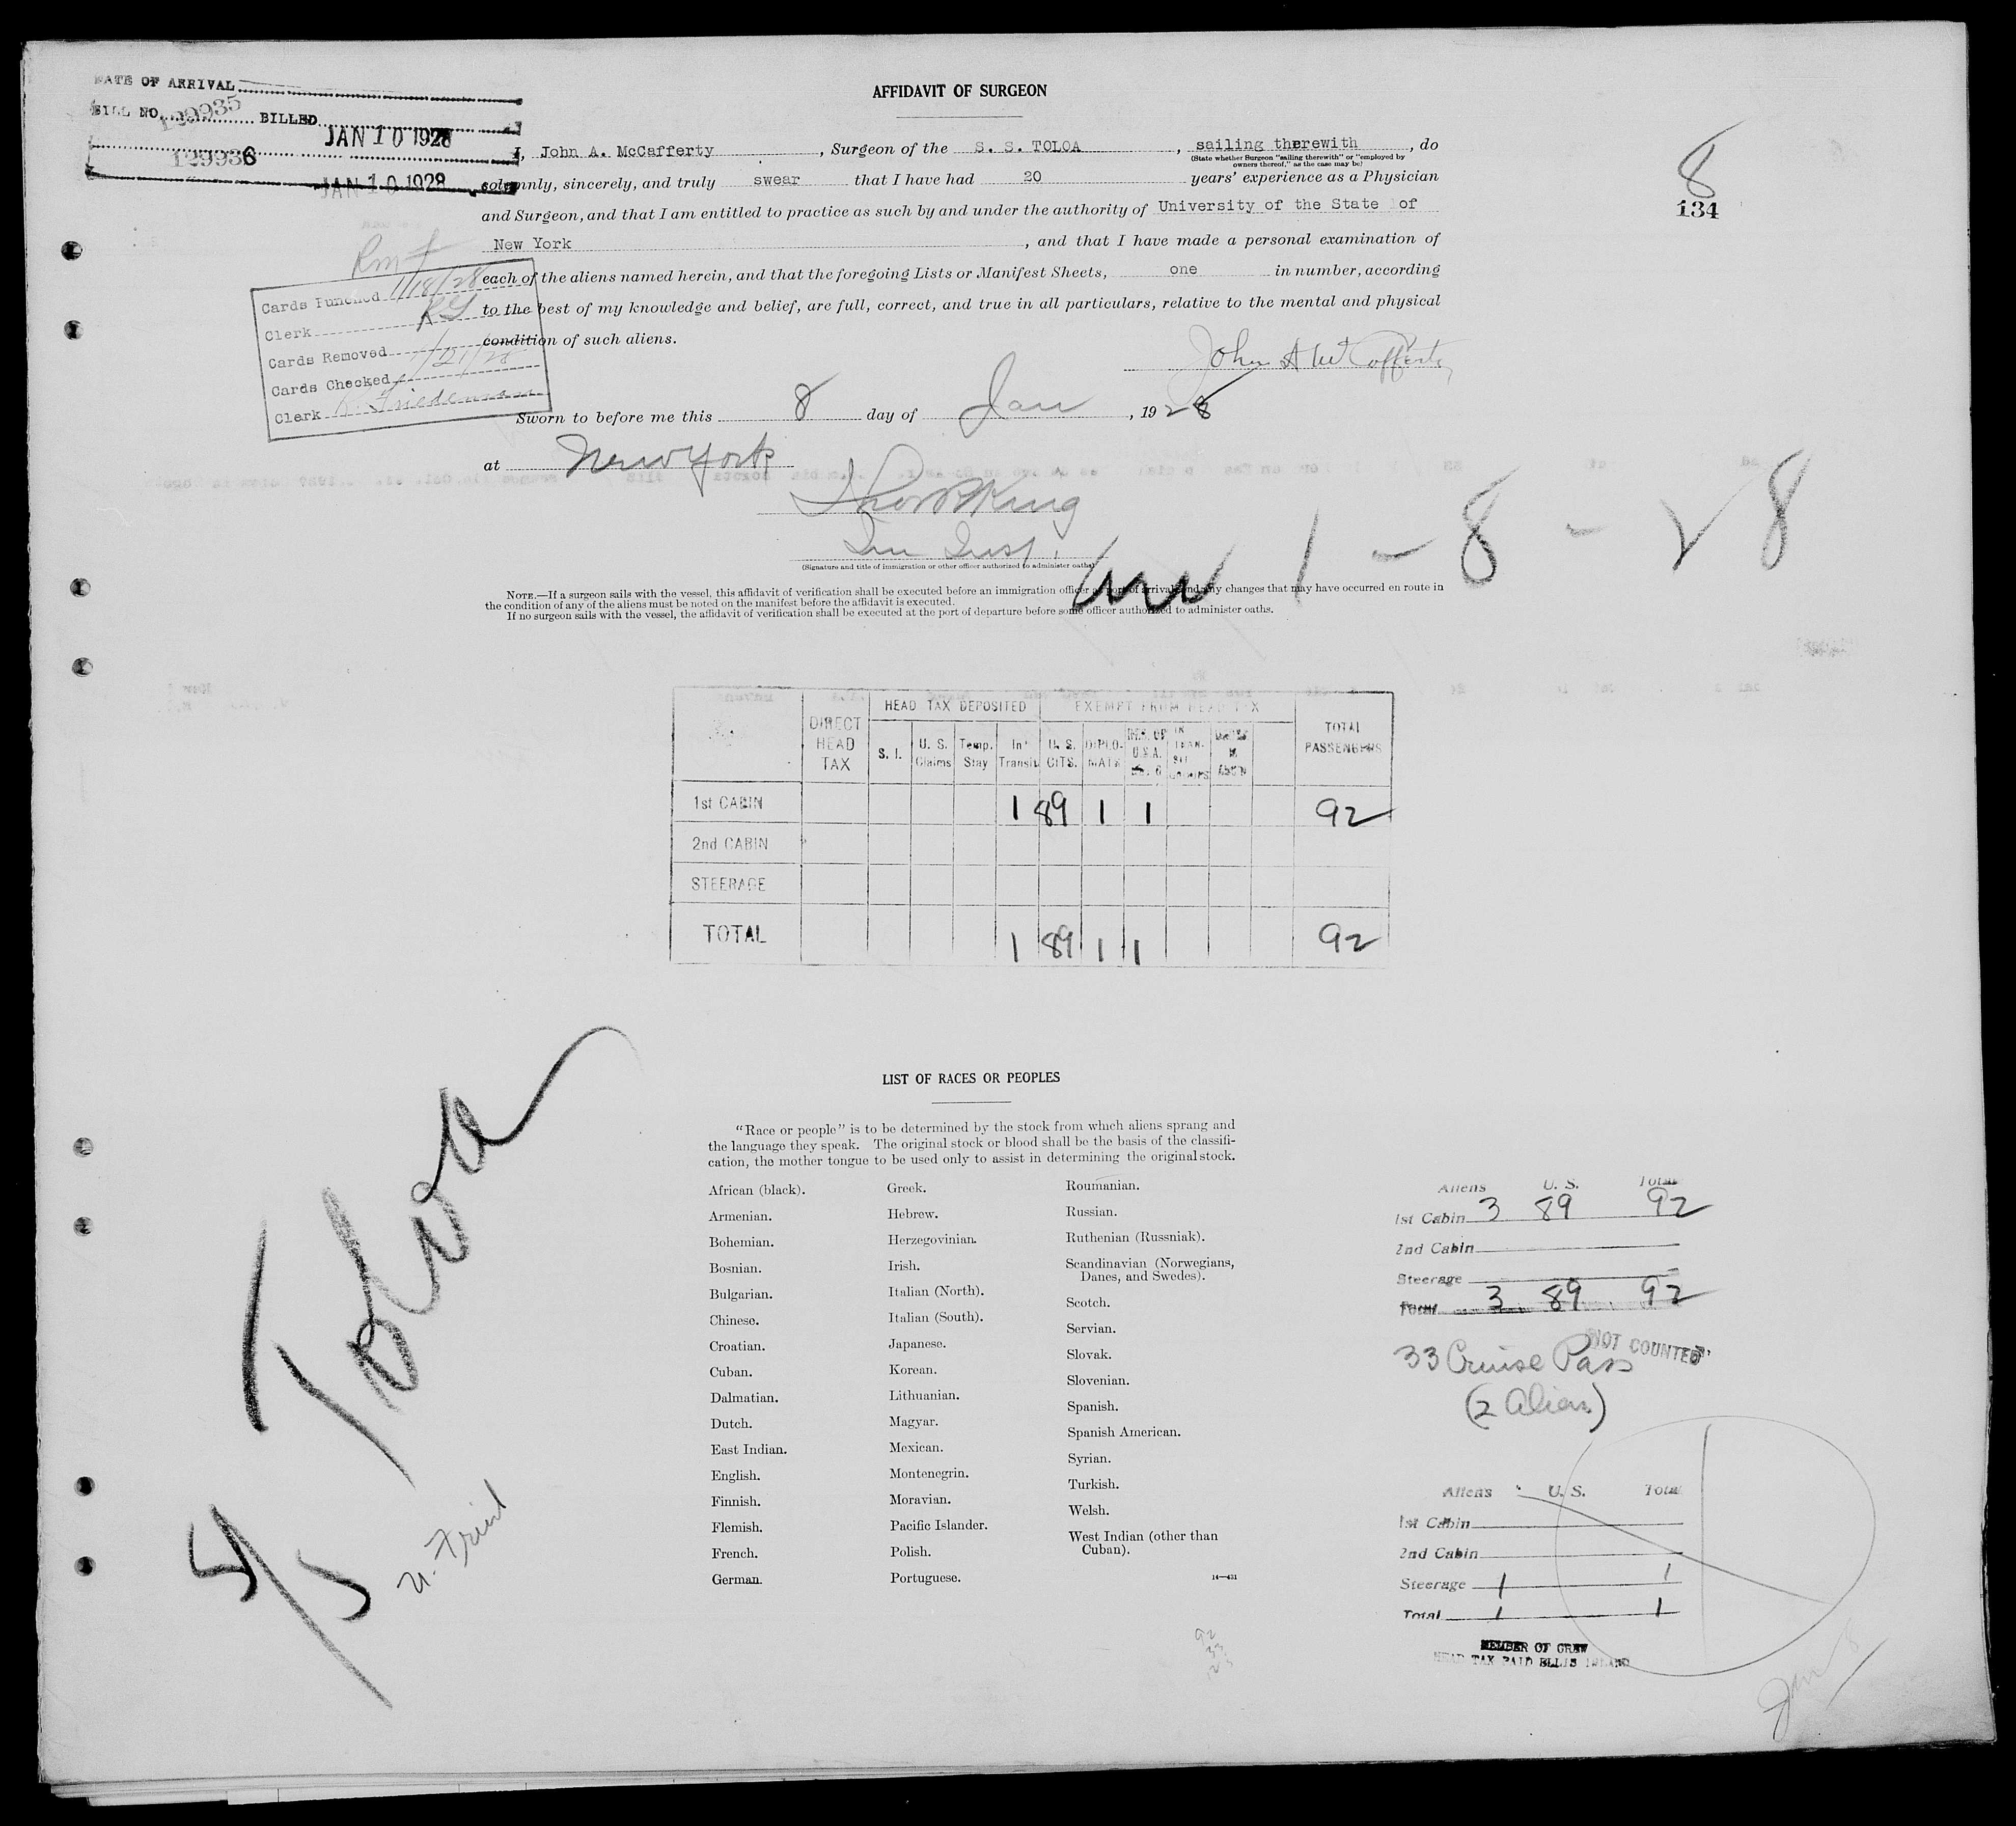 DATE OF ARRIVAL
BILL NO. 129935 BILLED JAN 10 1928
129936 JAN 10 1928
AFFIDAVIT OF SURGEON
I, John A. McCafferty, Surgeon of the S. S. TOLOA, sailing therewith, do
(State whether Surgeon "sailing therewith" or "employed by
owners thereof," as the case may be)
solemnly, sincerely, and truly swear that I have had 20 years' experience as a Physician
and Surgeon, and that I am entitled to practice as such by and under the authority of University of the State of
New York, and that I have made a personal examination of
each of the aliens named herein, and that the foregoing Lists or Manifest Sheets, one in number, according
to the best of my knowledge and belief, are full, correct, and true in all particulars, relative to the mental and physical
condition of such aliens.
8
134
Cards Punched 1/18/28
Clerk
Cards Removed
Cards Checked 1/21/28
Clerk Friedeman
John A McCafferty
Sworn to before me this 8 day of Jan, 1928
at New York
King
Im Insp.
(Signature and title of immigration or other officer authorized to administer oaths)
1 - 8 - 28
NOTE.—If a surgeon sails with the vessel, this affidavit of verification shall be executed before an immigration officer at port of arrival, and any changes that may have occurred en route in
the condition of any of the aliens must be noted on the manifest before the affidavit is executed.
If no surgeon sails with the vessel, the affidavit of verification shall be executed at the port of departure before some officer authorized to administer oaths.
HEAD TAX DEPOSITED EXEMPT FROM HEAD TAX
DIRECT HEAD TAX S. I. U. S. Claims Temp. Stay In Transit U. S. CITS. DIPLO-MATS TOTAL PASSENGERS
1st CABIN 1 89 1 1 92
2nd CABIN
STEERAGE
TOTAL 1 89 1 1 92
Toloa
LIST OF RACES OR PEOPLES
"Race or people" is to be determined by the stock from which aliens sprang and
the language they speak. The original stock or blood shall be the basis of the classifi-
cation, the mother tongue to be used only to assist in determining the original stock.
African (black).
Armenian.
Bohemian.
Bosnian.
Bulgarian.
Chinese.
Croatian.
Cuban.
Dalmatian.
Dutch.
East Indian.
English.
Finnish.
Flemish.
French.
German.
Greek.
Hebrew.
Herzegovinian.
Irish.
Italian (North).
Italian (South).
Japanese.
Korean.
Lithuanian.
Magyar.
Mexican.
Montenegrin.
Moravian.
Pacific Islander.
Polish.
Portuguese.
Roumanian.
Russian.
Ruthenian (Russniak).
Scandinavian (Norwegians,
Danes, and Swedes).
Scotch.
Servian.
Slovak.
Slovenian.
Spanish.
Spanish American.
Syrian.
Turkish.
Welsh.
West Indian (other than
Cuban).
14—431
Aliens U. S. Total
1st Cabin 3 89 92
2nd Cabin
Steerage
Total 3 89 92
NOT COUNTED
33 Cruise Pass
(2 Aliens)
Aliens U. S. Total
1st Cabin
2nd Cabin
Steerage 1 1
Total 1 1
MEMBER OF CREW
HEAD TAX PAID ELLIS ISLAND
92
33